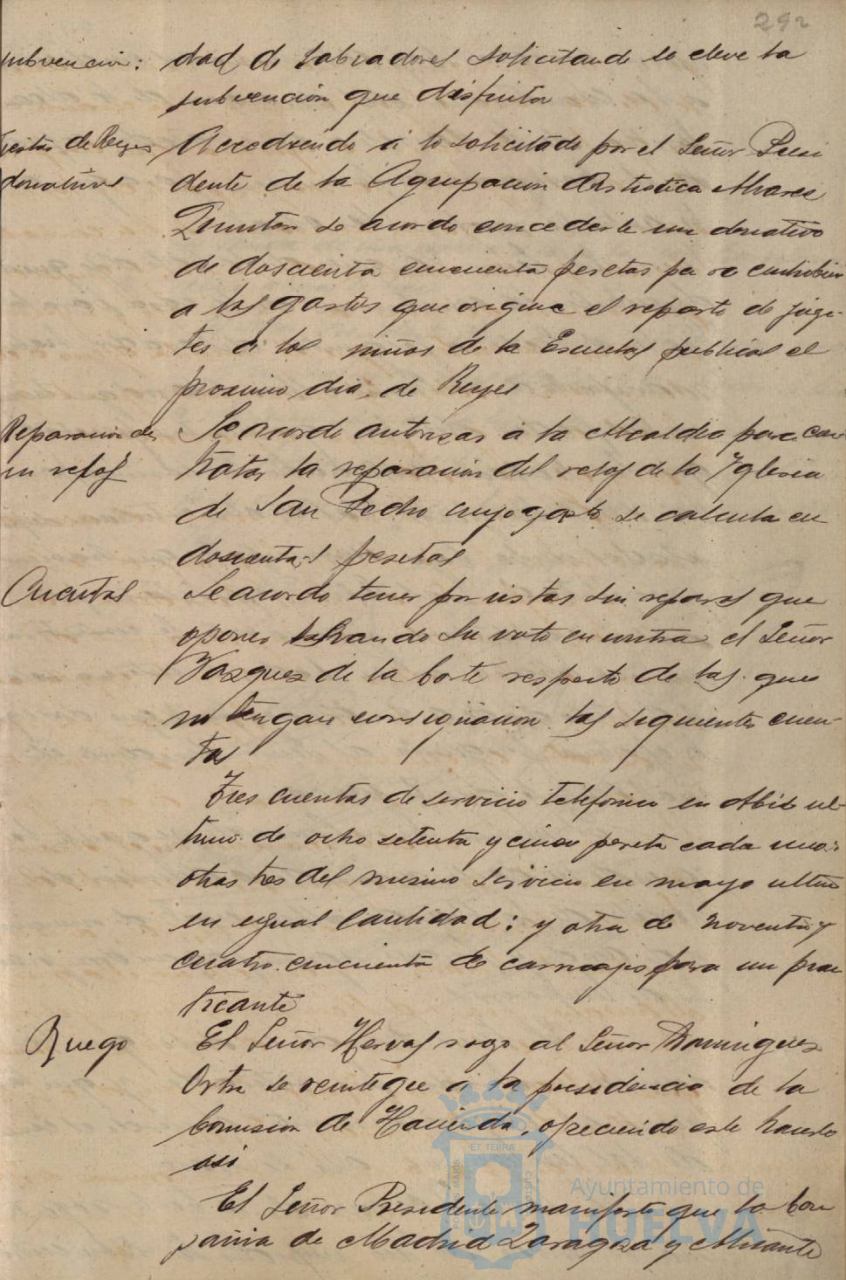 292
subvencion: dad de Labradores solicitando se eleve la
subvención que disfruta
Fiestas de Reyes Accediendo a lo solicitado por el Señor Presi
donativo dente de la Agrupación Artistica Alvarez
Quintero se acordo concederle un donativo
de doscienta cincuenta pesetas para contribuir
a los gastos que origine el reparto de jugue-
tes a los niños de la Escuelas publicas el
proximo dia de Reyes
Reparacion de Se acordo autorizar a la Alcaldia para con
un reloj tratar la reparacion del reloj de la Yglesia
de San Pedro cuyo gasto se calcula en
doscientas pesetas
Cuentas Se acordo tener por vistas sin reparos que
oponer salvando su voto en contra el Señor
Vazquez de la Corte respecto de las que
no tengan consignacion las siguientes cuen-
tas
Tres cuentas de servicio telefonico en Abril ul-
timo de ocho setenta y cinco peseta cada una:
otras tres del mismo servicio en mayo ultimo
en egual cantidad: y otra de noventa y
cuatro cincuenta de carruajes para un prac
ticante
Ruego El Señor Hervas rogo al Señor Dominguez
Orta se reintegre a la presidencia de la
Comision de Hacienda, ofreciendo este hacerlo
asi
El Señor Presidente manifesto que la Com
pañia de Madrid Zaragoza y Alicante
Ayuntamiento de
HUELVA